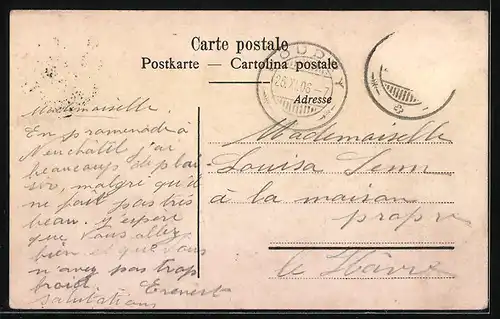 Carte postale
Postkarte — Cartolina postale
BUDRY
26.X.06-7
Adresse
Mademoiselle.
En promenade à
Neuchâtel j'ai
beaucoups de plai
sir, malgri qu'il
ne fait pas très
beau. J'espere
que vous allez
bien et que vous
n'avez pas trop
froid. Ernest
Salutations
Mademoiselle
Louisa Senn
à la maison
propre
le Hâvre